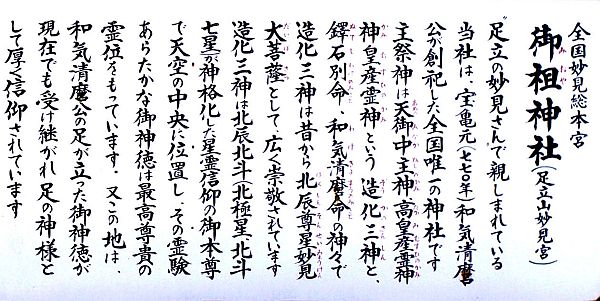 全国妙見総本宮
御祖神社(足立山妙見宮)
"足立の妙見さん"で親しまれている
当社は、宝亀元(七七〇年)和気清麿
公が創祀した全国唯一の神社です
主祭神は天御中主神、高皇産霊神
神皇産霊神という造化三神と、
鐸石別命、和気清麿命の神々で
造化三神は昔から北辰尊星妙見
大菩薩として、広く崇敬されています
造化三神は北辰北斗(北極星、北斗
七星)が神格化した星霊信仰の御本尊
で天空の中央に位置し、その霊験
あらたかな御神徳は最高尊貴の
霊位をもっています。又この地は、
和気清麿公の足が立った御神徳が
現在でも受け継がれ足の神様と
して厚く信仰されています